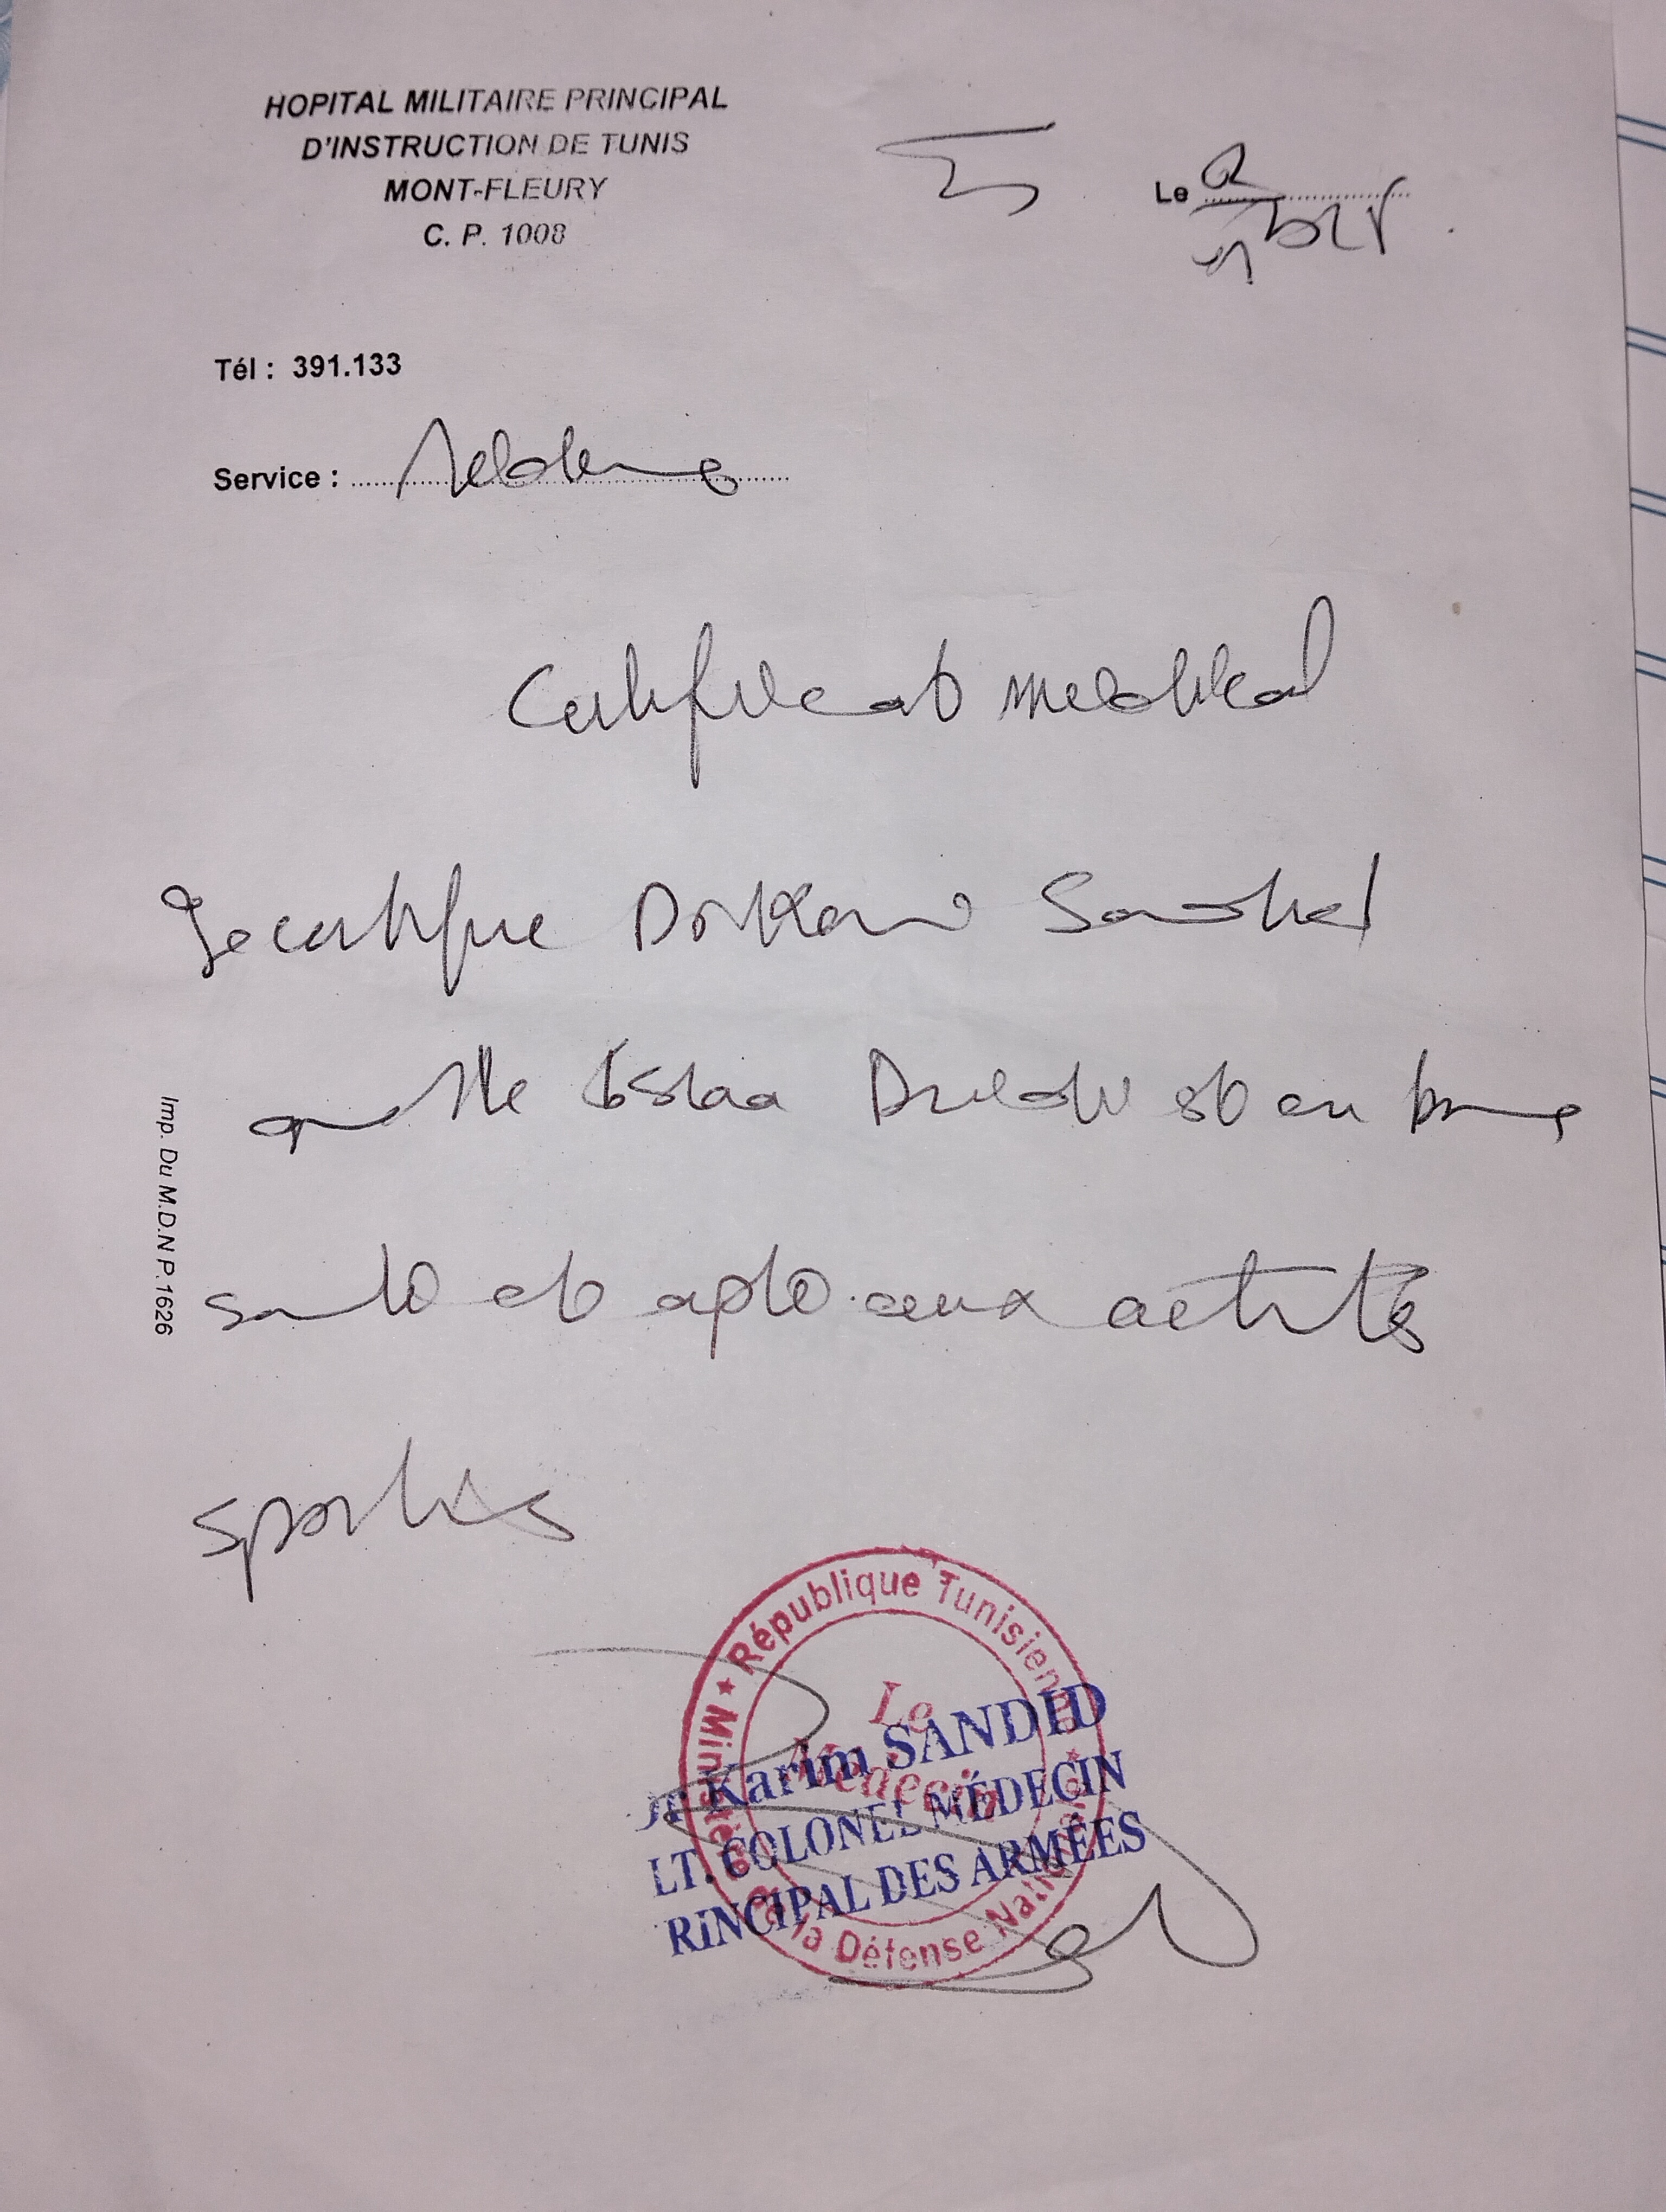 HOPITAL MILITAIRE PRINCIPAL
D'INSTRUCTION DE TUNIS
MONT-FLEURY
C. P. 1008
Le
Tél : 391.133
Service :
Certificat médical
Je certifie Dr Karim Sandid
que Mlle est en bonne
santé et apte aux activités
sportives
Imp. Du M.D.N P.1626
République Tunisienne
Ministère de la Défense Nationale
Le
Médecin
Dr Karim SANDID
LT. COLONEL MÉDECIN
RINCIPAL DES ARMÉES